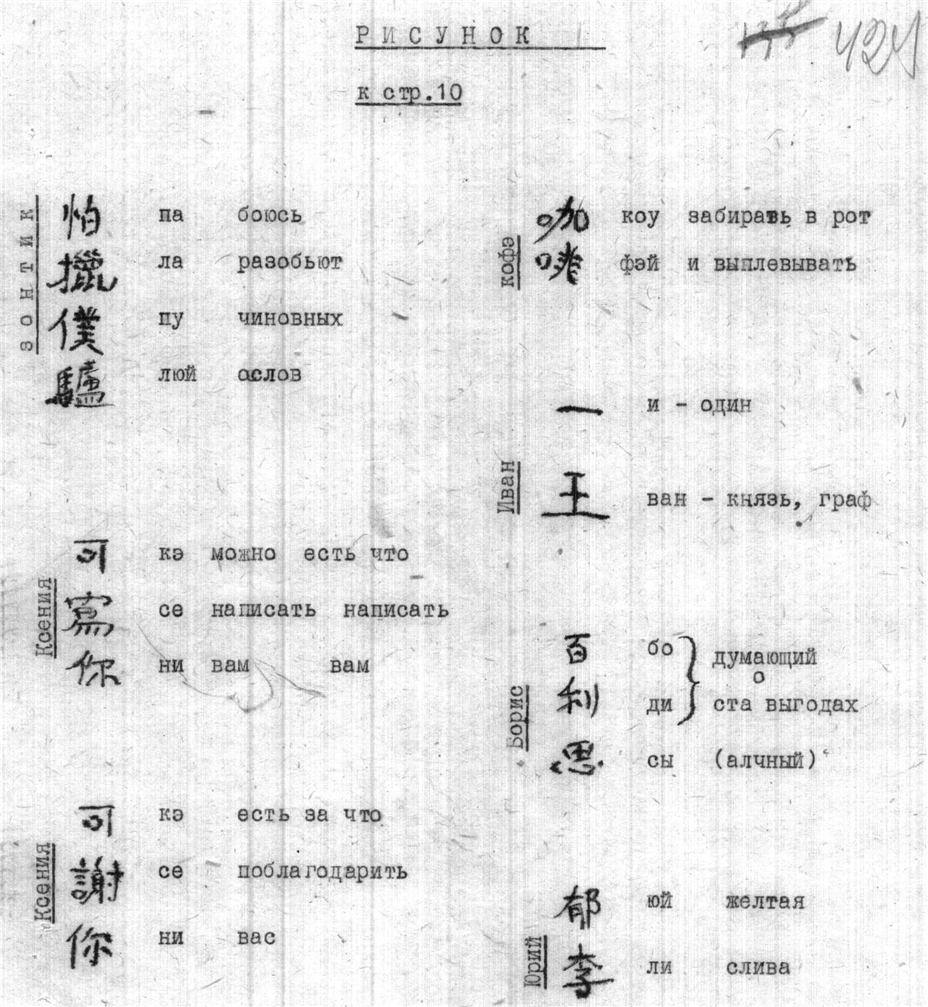 РИСУНОК
424
к стр.10
зонтик
怕 па боюсь
擸 ла разобьют
僕 пу чиновных
驢 люй ослов
Ксения
可 кэ можно есть что
寫 се написать написать
你 ни вам вам
Ксения
可 кэ есть за что
謝 се поблагодарить
你 ни вас
кофэ
咖 коу забирать в рот
啡 фэй и выплевывать
Иван
一 и - один
王 ван - князь, граф
Борис
百 бо думающий
о
利 ди ста выгодах
思 сы (алчный)
Юрий
郁 юй желтая
李 ли слива